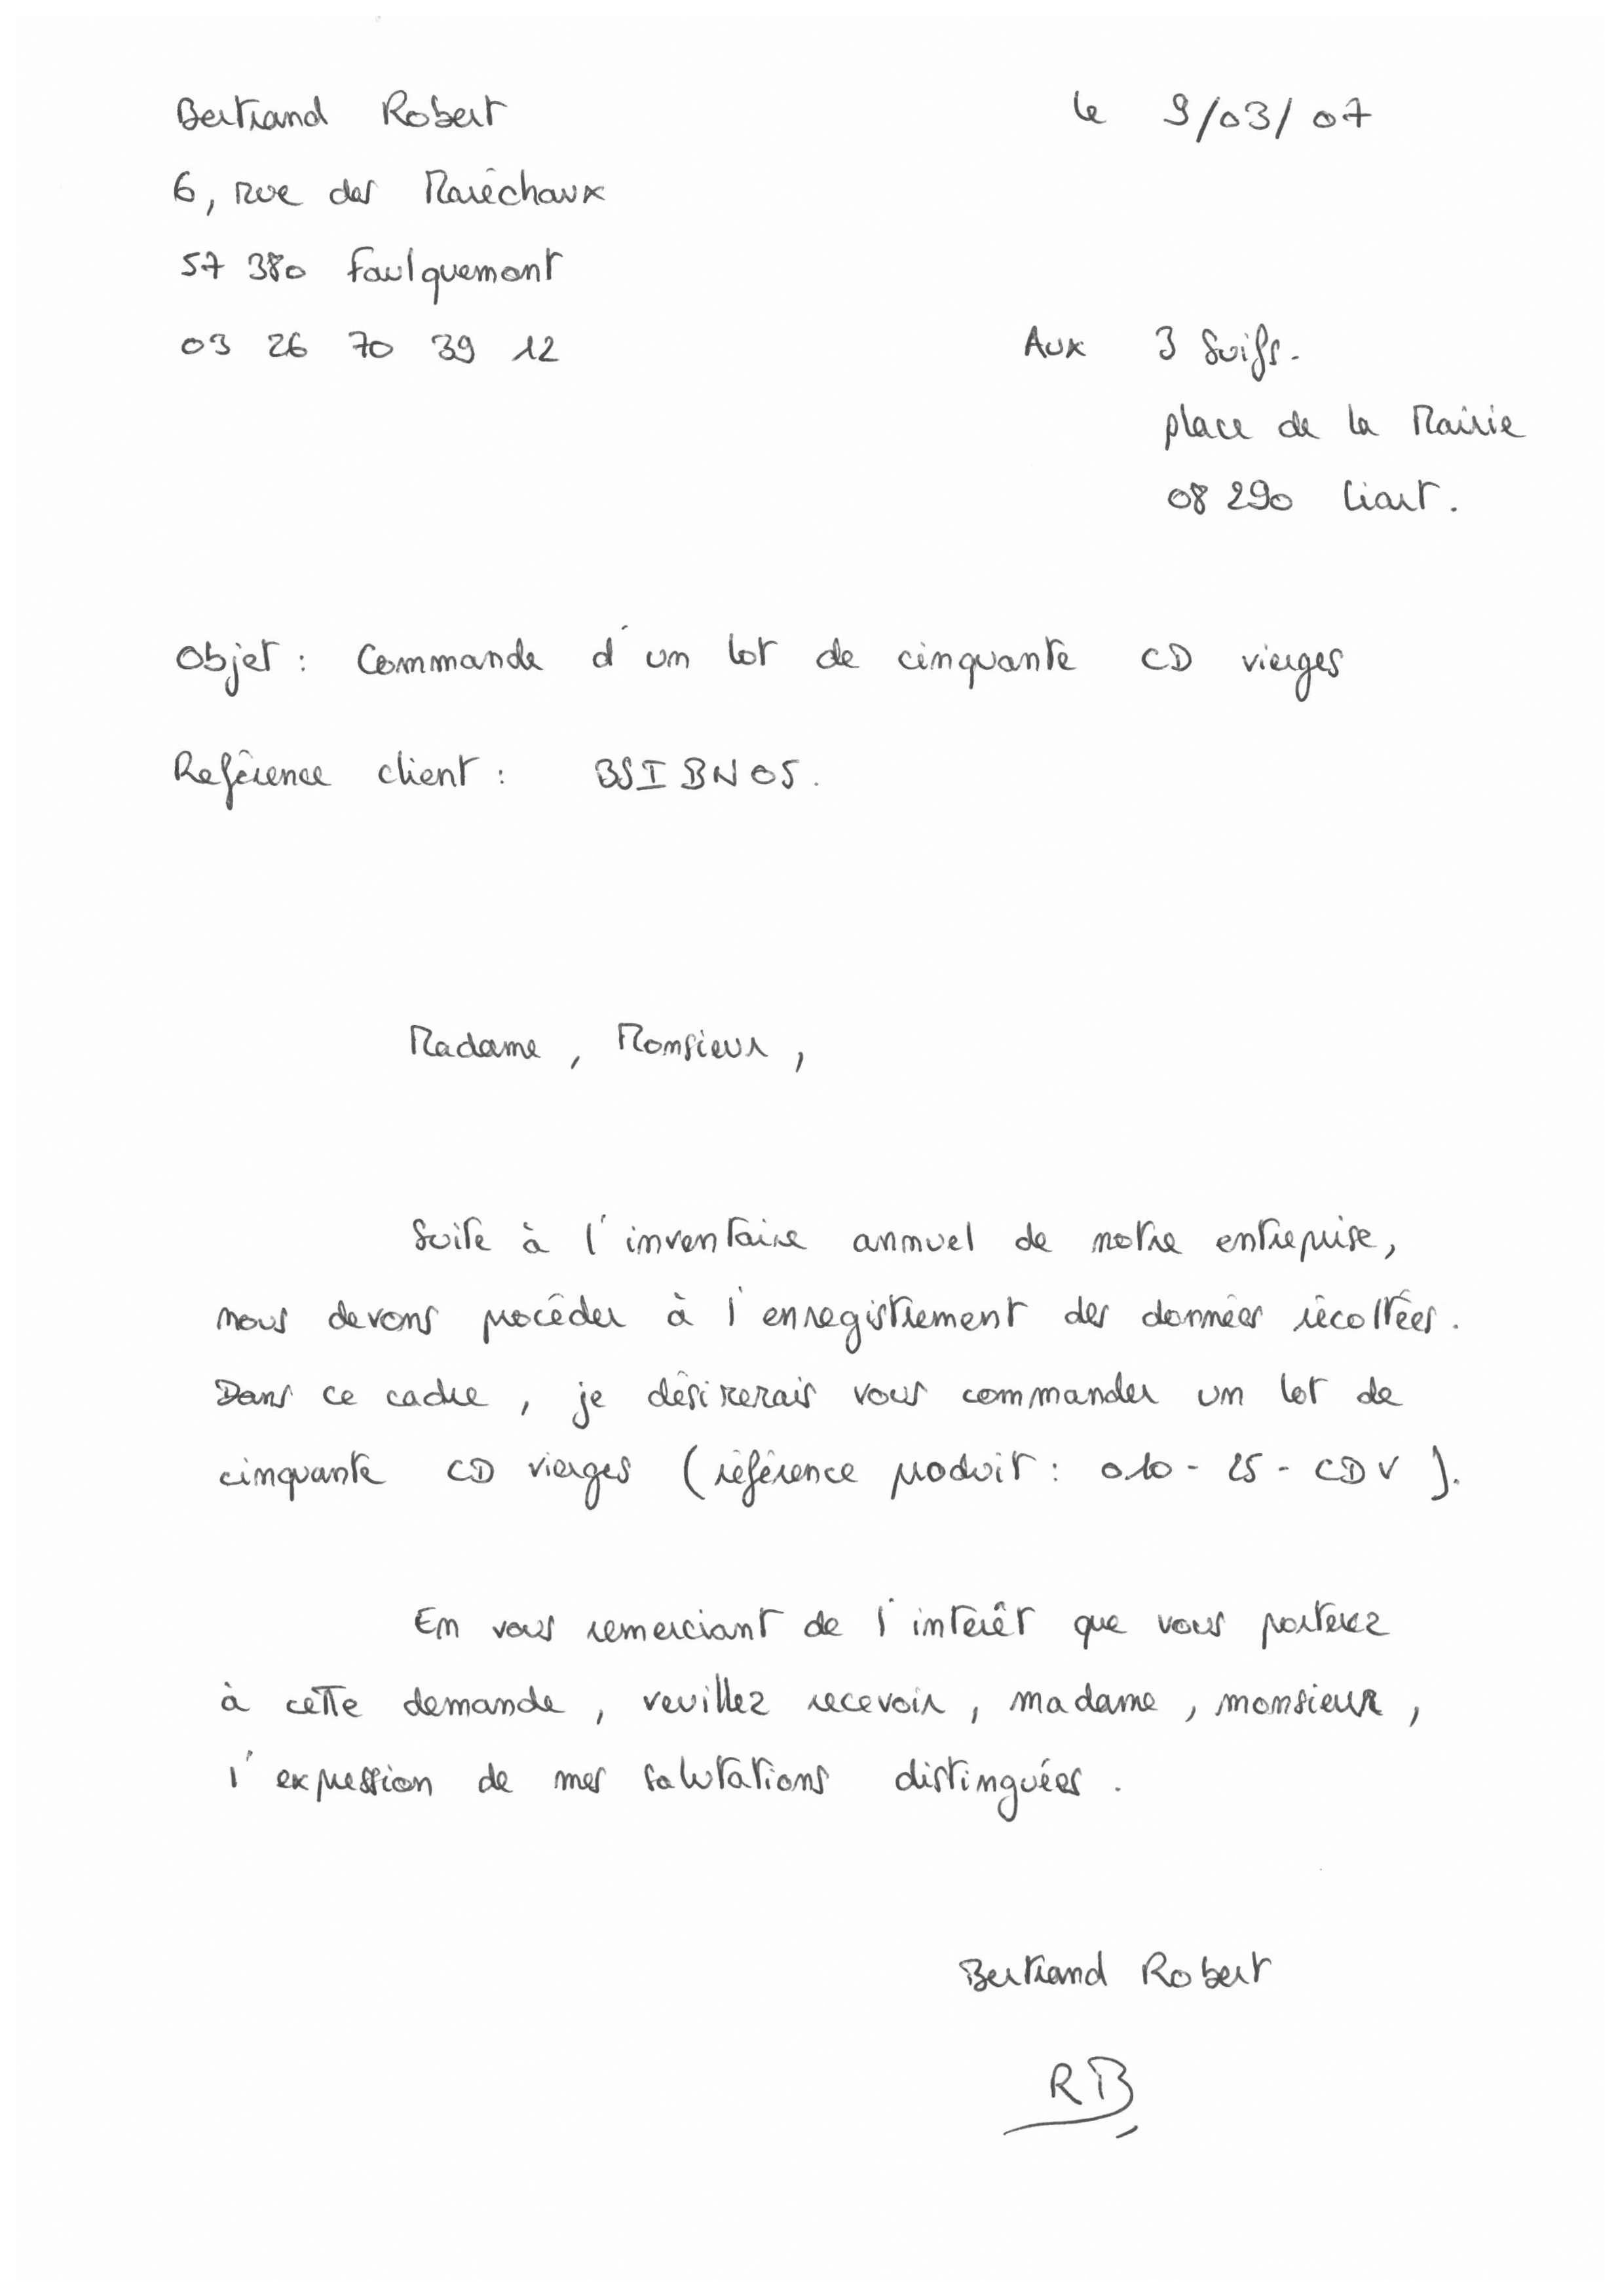 Bertrand Robert
le 9/03/07
6, rue des Maréchaux
57 380 Faulquemont
03 26 70 39 12
Aux 3 Suifs.
place de la Mairie
08 290 Liart.
Objet : Commande d'un lot de cinquante CD vierges
Reférence client : BSIBN05.
Madame, Monsieur,
Suite à l'inventaire annuel de notre entreprise,
nous devons procéder à l'enregistrement des données récoltées.
Dans ce cadre, je désirerais vous commander un lot de
cinquante CD vierges (référence produit : 010-25-CDV).
En vous remerciant de l'interêt que vous porterez
à cette demande, veuillez recevoir, madame, monsieur,
l'expression de mes salutations distinguées.
Bertrand Robert
RB